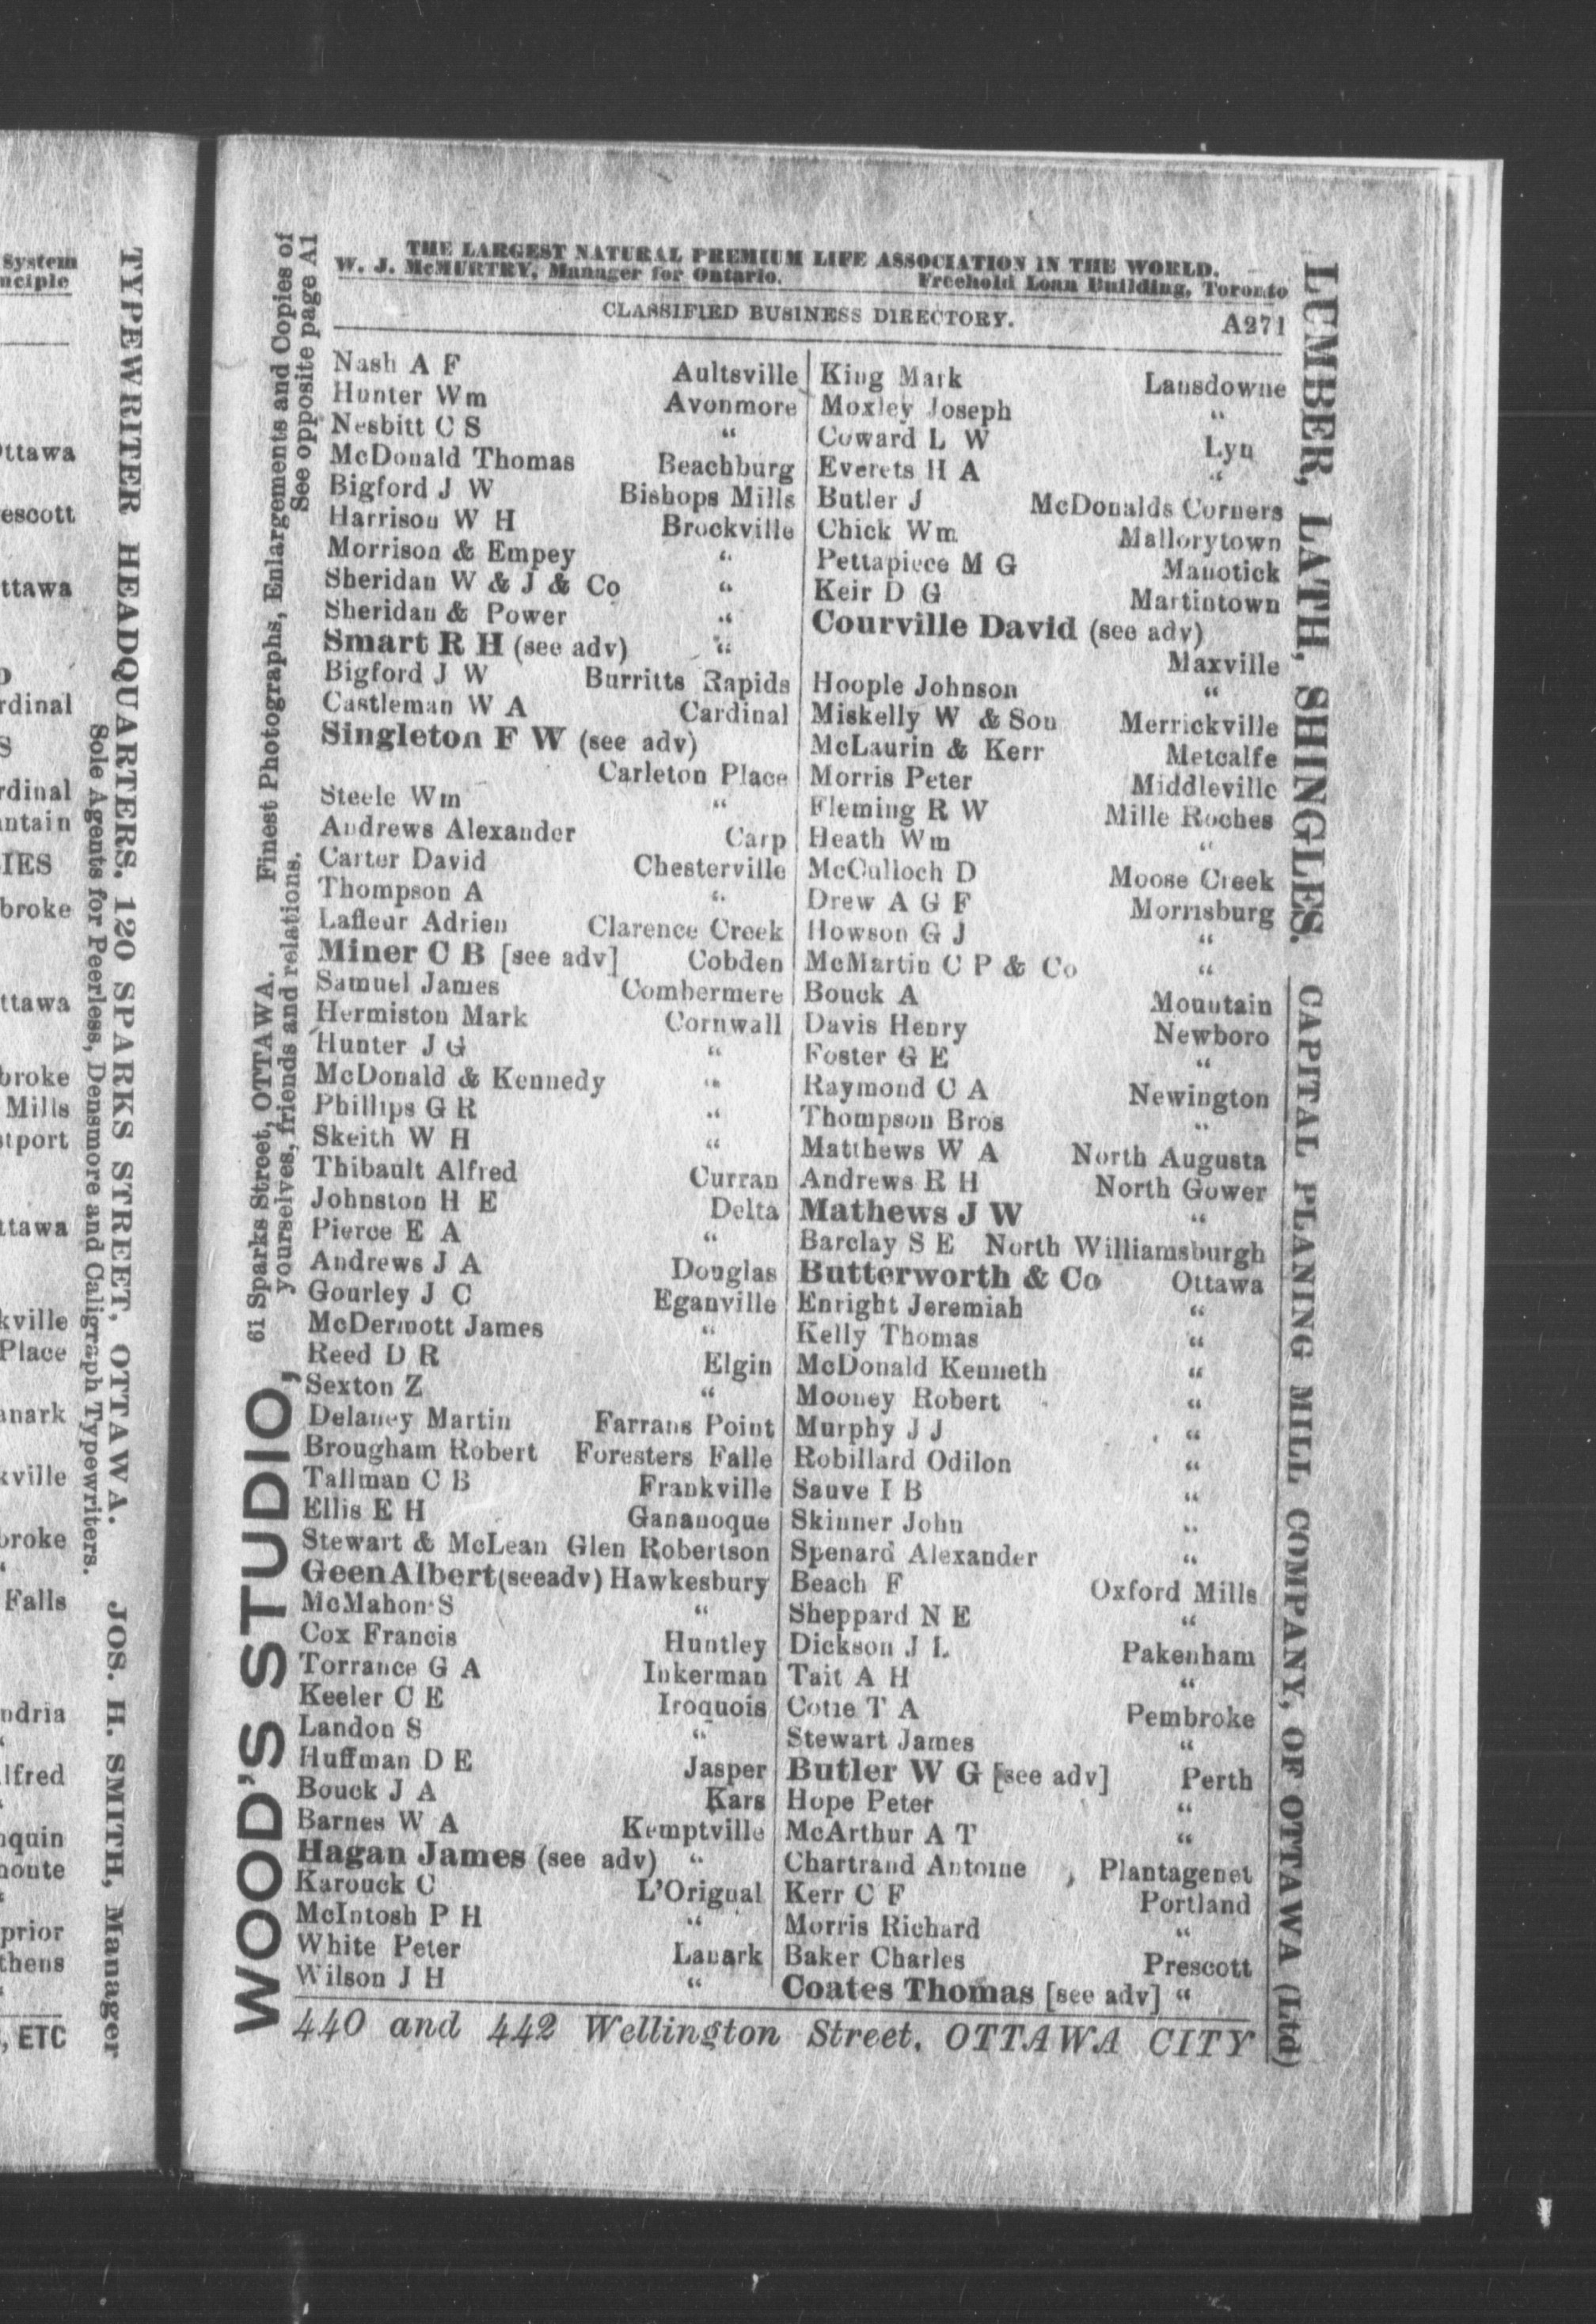 THE LARGEST NATURAL PREMIUM LIFE ASSOCIATION IN THE WORLD.
W. J. McMURTRY, Manager for Ontario. Freehold Loan Building, Toronto
CLASSIFIED BUSINESS DIRECTORY. A271
Nash A F Aultsville
Hunter Wm Avonmore
Nesbitt C S "
McDonald Thomas Beachburg
Bigford J W Bishops Mills
Harrison W H Brockville
Morrison & Empey "
Sheridan W & J & Co "
Sheridan & Power "
Smart R H (see adv) "
Bigford J W Burritts Rapids
Castleman W A Cardinal
Singleton F W (see adv)
Carleton Place
Steele Wm "
Andrews Alexander Carp
Carter David Chesterville
Thompson A "
Lafleur Adrien Clarence Creek
Miner C B [see adv] Cobden
Samuel James Combermere
Hermiston Mark Cornwall
Hunter J G "
McDonald & Kennedy "
Phillips G R "
Skeith W H "
Thibault Alfred Curran
Johnston H E Delta
Pierce E A "
Andrews J A Douglas
Gourley J C Eganville
McDermott James "
Reed D R Elgin
Sexton Z "
Delaney Martin Farrans Point
Brougham Robert Foresters Falle
Tallman C B Frankville
Ellis E H Gananoque
Stewart & McLean Glen Robertson
Geen Albert (see adv) Hawkesbury
McMahon S "
Cox Francis Huntley
Torrance G A Inkerman
Keeler C E Iroquois
Landon S "
Huffman D E Jasper
Bouck J A Kars
Barnes W A Kemptville
Hagan James (see adv) "
Karouck C L'Orignal
McIntosh P H "
White Peter Lanark
Wilson J H "
King Mark Lansdowne
Moxley Joseph "
Coward L W Lyn
Everets H A "
Butler J McDonalds Corners
Chick Wm Mallorytown
Pettapiece M G Manotick
Keir D G Martintown
Courville David (see adv)
Maxville
Hoople Johnson "
Miskelly W & Son Merrickville
McLaurin & Kerr Metcalfe
Morris Peter Middleville
Fleming R W Mille Roches
Heath Wm "
McCulloch D Moose Creek
Drew A G F Morrisburg
Howson G J "
McMartin C P & Co "
Bouck A Mountain
Davis Henry Newboro
Foster G E "
Raymond C A Newington
Thompson Bros "
Matthews W A North Augusta
Andrews R H North Gower
Mathews J W "
Barclay S E North Williamsburgh
Butterworth & Co Ottawa
Enright Jeremiah "
Kelly Thomas "
McDonald Kenneth "
Mooney Robert "
Murphy J J "
Robillard Odilon "
Sauve I B "
Skinner John "
Spenard Alexander "
Beach F Oxford Mills
Sheppard N E "
Dickson J L Pakenham
Tait A H "
Cotie T A Pembroke
Stewart James "
Butler W G [see adv] Perth
Hope Peter "
McArthur A T "
Chartrand Antoine Plantagenet
Kerr C F Portland
Morris Richard "
Baker Charles Prescott
Coates Thomas [see adv] "
440 and 442 Wellington Street, OTTAWA CITY
WOOD'S STUDIO, 61 Sparks Street, OTTAWA. Finest Photographs, Enlargements and Copies of
yourselves, friends and relations. See opposite page A1
LUMBER, LATH, SHINGLES. CAPITAL PLANING MILL COMPANY, OF OTTAWA (Ltd)
TYPEWRITER HEADQUARTERS, 120 SPARKS STREET, OTTAWA. JOS. H. SMITH, Manager
Sole Agents for Peerless, Densmore and Caligraph Typewriters.
System
nciple
Ottawa
escott
ttawa
rdinal
S
rdinal
untain
IES
broke
ttawa
broke
Mills
stport
ttawa
kville
Place
anark
kville
broke
"
Falls
ndria
"
lfred
quin
prior
thens
"
, ETC